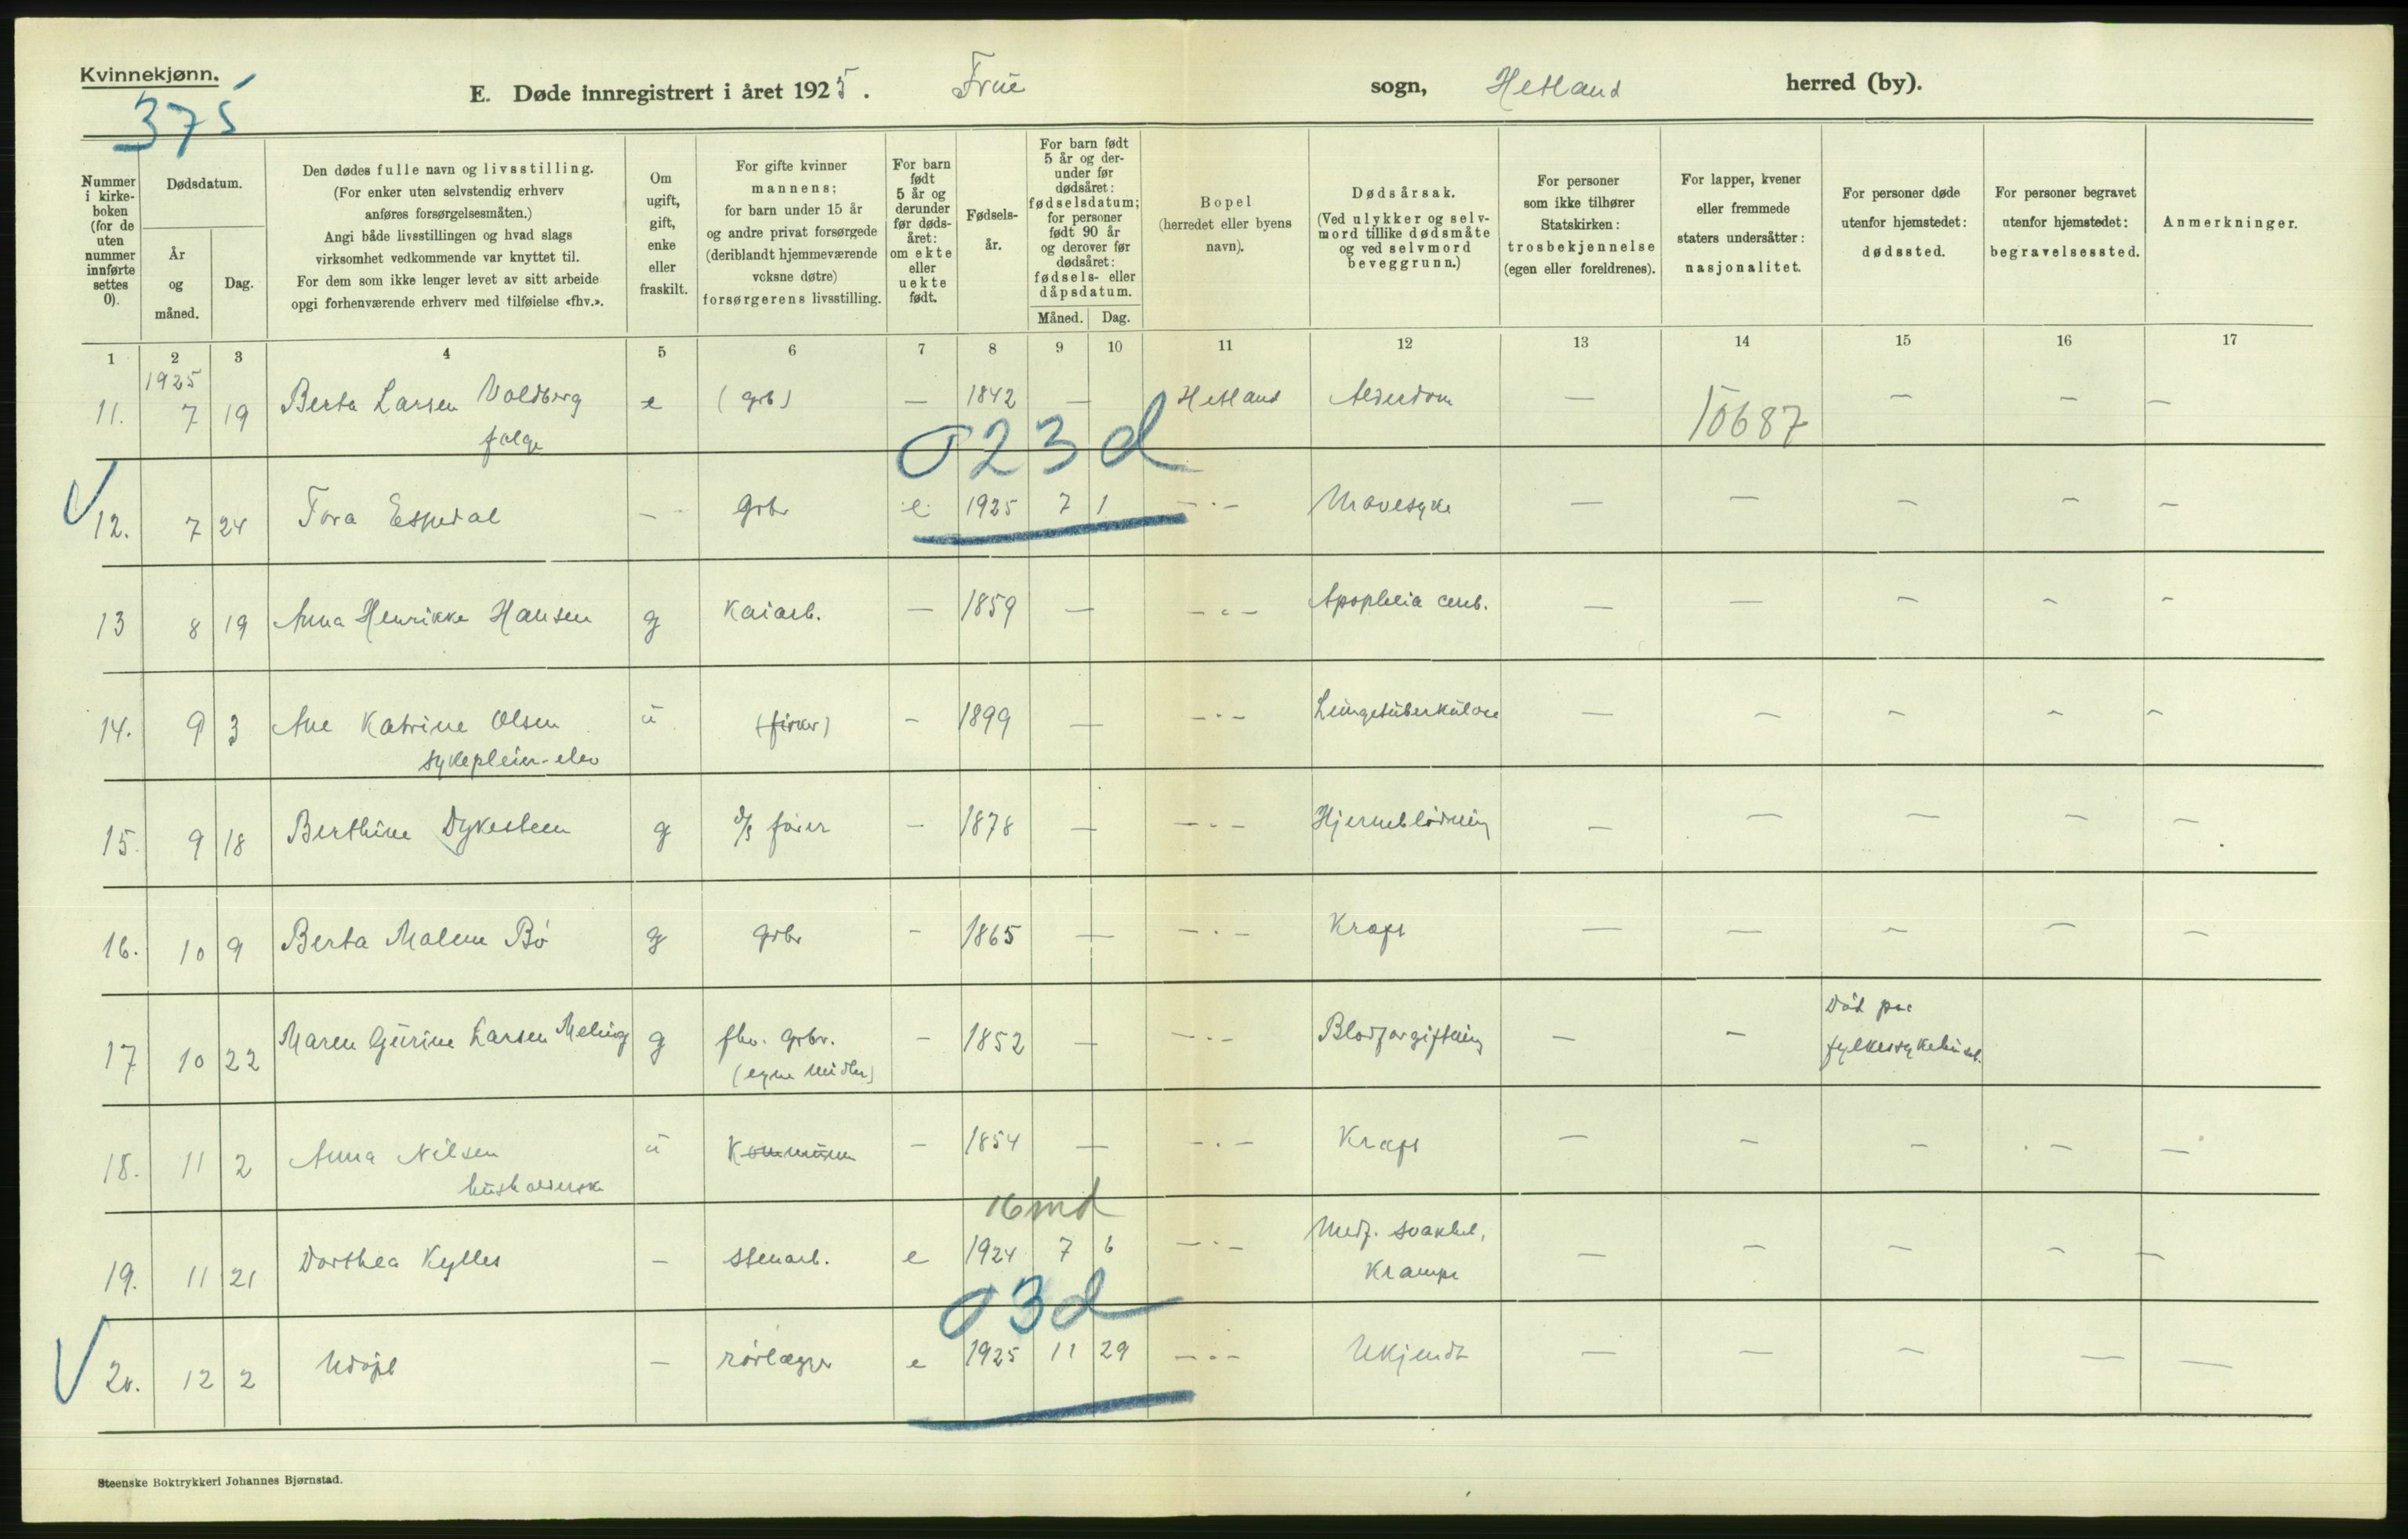 Kvinnekjønn.
375
E. Døde innregistrert i året 1925. Frue sogn, Hetland herred (by).
Nummer i kirke-boken (for de uten nummer innførte settes 0).
Dødsdatum.
År og måned.
Dag.
Den dødes fulle navn og livsstilling.
(For enker uten selvstendig erhverv
anføres forsørgelsesmåten.)
Angi både livsstillingen og hvad slags
virksomhet vedkommende var knyttet til.
For dem som ikke lenger levet av sitt arbeide
opgi forhenværende erhverv med tilføielse «fhv.».
Om ugift, gift, enke eller fraskilt.
For gifte kvinner
mannens;
for barn under 15 år
og andre privat forsørgede
(deriblandt hjemmeværende
voksne døtre)
forsørgerens livsstilling.
For barn født 5 år og derunder før døds-året: om ekte eller uekte født.
Fødsels-år.
For barn født 5 år og der-under før dødsåret: fødselsdatum; for personer født 90 år og derover før dødsåret: fødsels- eller dåpsdatum.
Måned. Dag.
Bopel
(herredet eller byens
navn).
Dødsårsak.
(Ved ulykker og selv-
mord tillike dødsmåte
og ved selvmord
beveggrunn.)
For personer
som ikke tilhører
Statskirken:
trosbekjennelse
(egen eller foreldrenes).
For lapper, kvener
eller fremmede
staters undersåtter:
nasjonalitet.
For personer døde
utenfor hjemstedet:
dødssted.
For personer begravet
utenfor hjemstedet:
begravelsessted.
Anmerkninger.
1 2 3 4 5 6 7 8 9 10 11 12 13 14 15 16 17
1925
11. 7 19 Berta Larsen Voldberg e (grb) — 1842 — Hetland Alderdom — — — —
folge
10687
023d
12. 7 24 Tora Espedal — grbr e. 1925 7 1 — " — Mavesyke — — — — —
13 8 19 Anna Henrikke Hansen g Kaiarb. — 1859 — — " — Apoplexia cereb. — — — — —
14. 9 3 Ane Katrine Olsen u (fisker) — 1899 — — " — Lungetuberkulose — — — — —
sykepleier-elev
15. 9 18 Berthine Dykesteen g d/s fører — 1878 — — " — Hjerneblødning — — — — —
16. 10 9 Berta Malene Bø g grbr — 1865 — — " — Kræft — — — — —
17 10 22 Maren Gurine Larsen Meling g fhv. grbr. — 1852 — — " — Blodforgiftning — — Död paa
(egne midler) fylkessykehuset.
18. 11 2 Anna Nilsen u Kommunen — 1854 — — " — Kræft — — — — —
husholderske
16 md
19. 11 21 Dorthea Kylles — stenarb. e 1924 7 6 — " — Medf. svakhet, — — — — —
Krampe
03d
20. 12 2 Udøpt — rørlægger e 1925 11 29 — " — Ukjendt — — — — —
Steenske Boktrykkeri Johannes Bjørnstad.